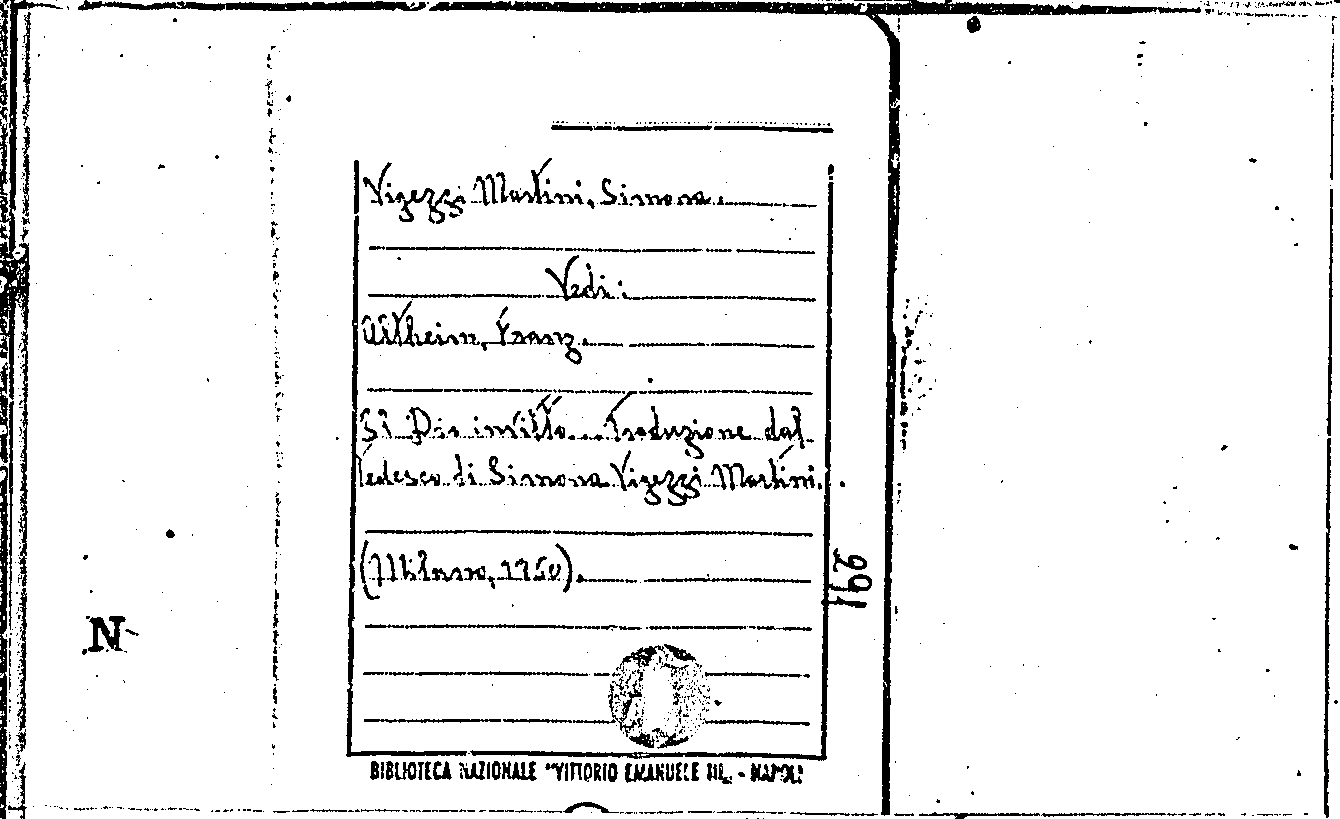 Vigezzi Martini, Simona.
Vedi:
Altheim, Franz.
Il Dio invitto... Traduzione dal
tedesco di Simona Vigezzi Martini.
(Milano, 1960).
291
N
BIBLIOTECA NAZIONALE "VITTORIO EMANUELE III" - NAPOLI